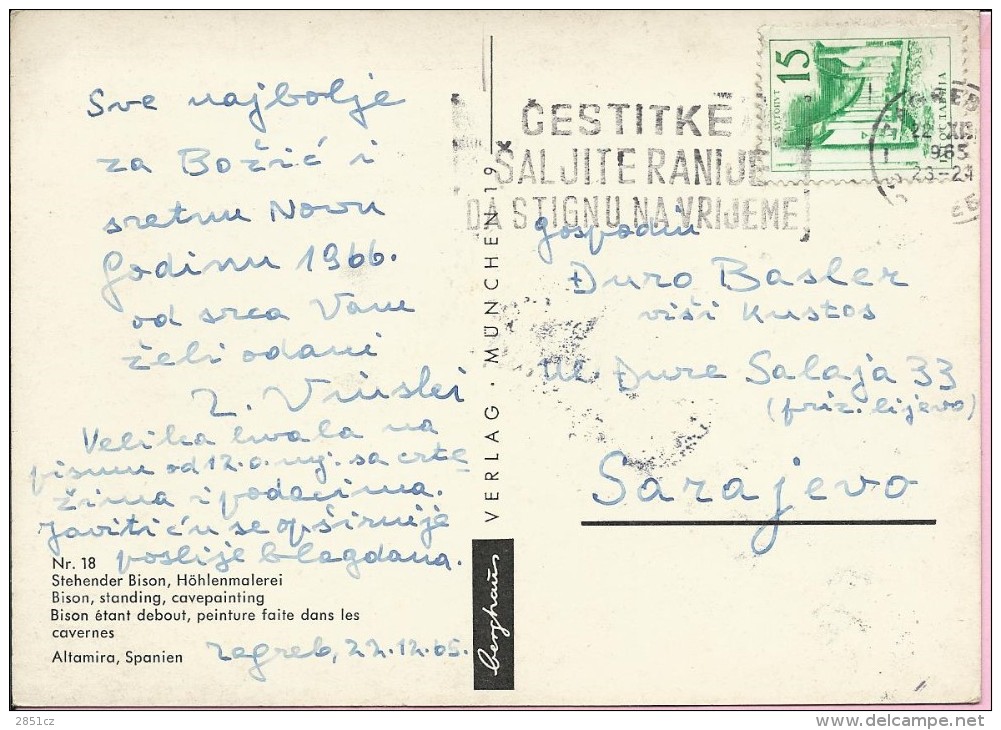 Sve najbolje
za Božić i
sretnu Novu
Godinu 1966.
od srca Vam
želi odani
Z. Vinski
Velika hvala na
pismu od 12. o. mj. sa crte-
žima i podacima.
Javiti ću se opširnije
poslije blagdana.
Nr. 18
Stehender Bison, Höhlenmalerei
Bison, standing, cavepainting
Bison étant debout, peinture faite dans les
cavernes
Altamira, Spanien
Zagreb, 22.12.65.
VERLAG · MÜNCHEN 19
berghaus
ČESTITKE
ŠALJITE RANIJE
DA STIGNU NA VRIJEME
15
22 XII
1965
23-24
Gospodin
Đuro Basler
viši kustos
Ul. Đure Salaja 33
(priz. lijevo)
Sarajevo
2851cz
delcampe.net